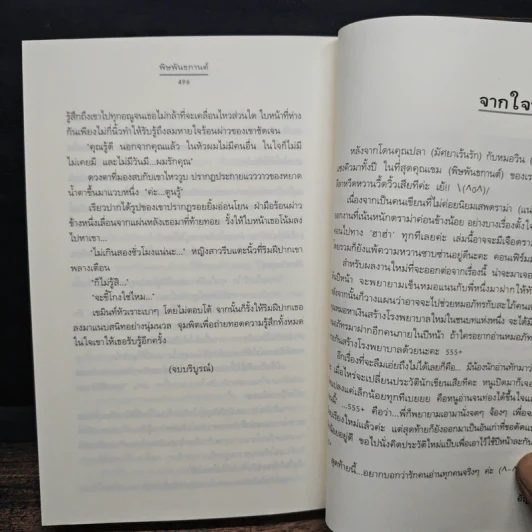 พิษพันธกานต์
494
รู้สึกถึงเขาไปทุกอณูจนเธอไม่กล้าที่จะเคลื่อนไหวส่วนใด ใบหน้าที่ห่าง
กันเพียงไม่กี่นิ้วทำให้รับรู้ถึงลมหายใจร้อนผ่าวของเขาชัดเจน
'คุณรู้ดี นอกจากคุณแล้ว ในหัวผมไม่มีคนอื่น ในใจก็ไม่มี
ไม่เคยมี และไม่มีวันมี...ผมรักคุณ'
ดวงตาที่มองสบกับเขาไหววูบ ปรากฏประกายแวววาวของหยาด
น้ำตาขึ้นมาแวบหนึ่ง "ค่ะ...ตูนรู้"
เรียวปากได้รูปของเขาปรากฏรอยยิ้มอ่อนโยน ฝ่ามือร้อนผ่าว
ข้างหนึ่งเลื่อนจากแผ่นหลังเธอมาที่ท้ายทอย รั้งให้ใบหน้าเธอโน้มลง
ไปหาเขา...
"ไม่เกินสองชั่วโมงแน่นะ..." หญิงสาวรีบแตะนิ้วที่ริมฝีปากเขา
พลางเตือน
"ก็ไม่รู้สิ..."
"จะขี้โกงใช่ไหม..."
เขมินท์หัวเราะเบาๆ โดยไม่ตอบโต้ จากนั้นก็รั้งให้ริมฝีปากเธอ
ลงมาแนบสนิทอย่างนุ่มนวล จุมพิตเพื่อถ่ายทอดความรู้สึกทั้งหมด
ในใจเขาให้เธอรับรู้อีกครั้ง
(จบบริบูรณ์)
จากใจ
หลังจากโดนคุณปลา (มัศยาเร้นรัก) กับหมอวิน
ในที่สุดคุณเขม (พิษพันธกานต์) ของเรา
หวานวี้ดวิ้วเสียทีค่ะ เย้!! \(^o^)/
เนื่องจากเป็นคนเขียนที่ไม่ค่อยนิยมเสพดราม่า
งานที่เน้นหนักดราม่าค่อนข้างน้อย อย่างบางเรื่องตั้งใจ
ไปทาง 'ฮาฮ่า' ทุกทีเลยค่ะ เล่มนี้อาจจะมีเจือดราม่า
โดยรวมก็ยังแพ้ความหวานซาบซ่านอยู่ดีนะคะ คอนเฟิร์ม
สำหรับผลงานใหม่ที่จะออกต่อจากเรื่องนี้ น่าจะมาเจอ
ปีหน้า จะพยายามเข็นหมอแทนกับพี่หนึ่งมาฝากให้
จากนั้นก็วางแผนว่าอาจจะไปช่วยหมอภัทรกับสะใภ้คน
เสนอหาเงินสร้างโรงพยาบาลใหม่ในชนบทแห่งหนึ่ง จะได้มี
ภัทรมาฝากอีกคนภายในปีหน้า ถ้าใครอยากอ่านหมอภัทร
กันสร้างโรงพยาบาลด้วยนะคะ 555+
อีกเรื่องที่จะลืมเอ่ยถึงไม่ได้เลยก็คือ... มีน้องนักอ่านทักมา
เมื่อไหร่จะเปลี่ยนประวัตินักเขียนเสียทีคะ หนูเปิดมาก็เจอ
แปลงแค่เล็กน้อยทุกทีเบยยย คือหนูอ่านจนท่องได้ขึ้นใจ
...555+ คือว่า...พี่ก็พยายามเอามานั่งจดๆ จ้องๆ เพื่อจะ
เรียงใหม่แล้วค่ะ แต่สุดท้ายก็ยังออกมาเป็นอันเก่าที่ขอตัดแ
อยู่ดี ขอไปนั่งคิดประวัติใหม่แป๊บเพื่อเอาไว้ใช้ปีหน้าละกัน
สุดท้ายนี้...อยากบอกว่ารักคนอ่านทุกคนจริงๆ ค่ะ